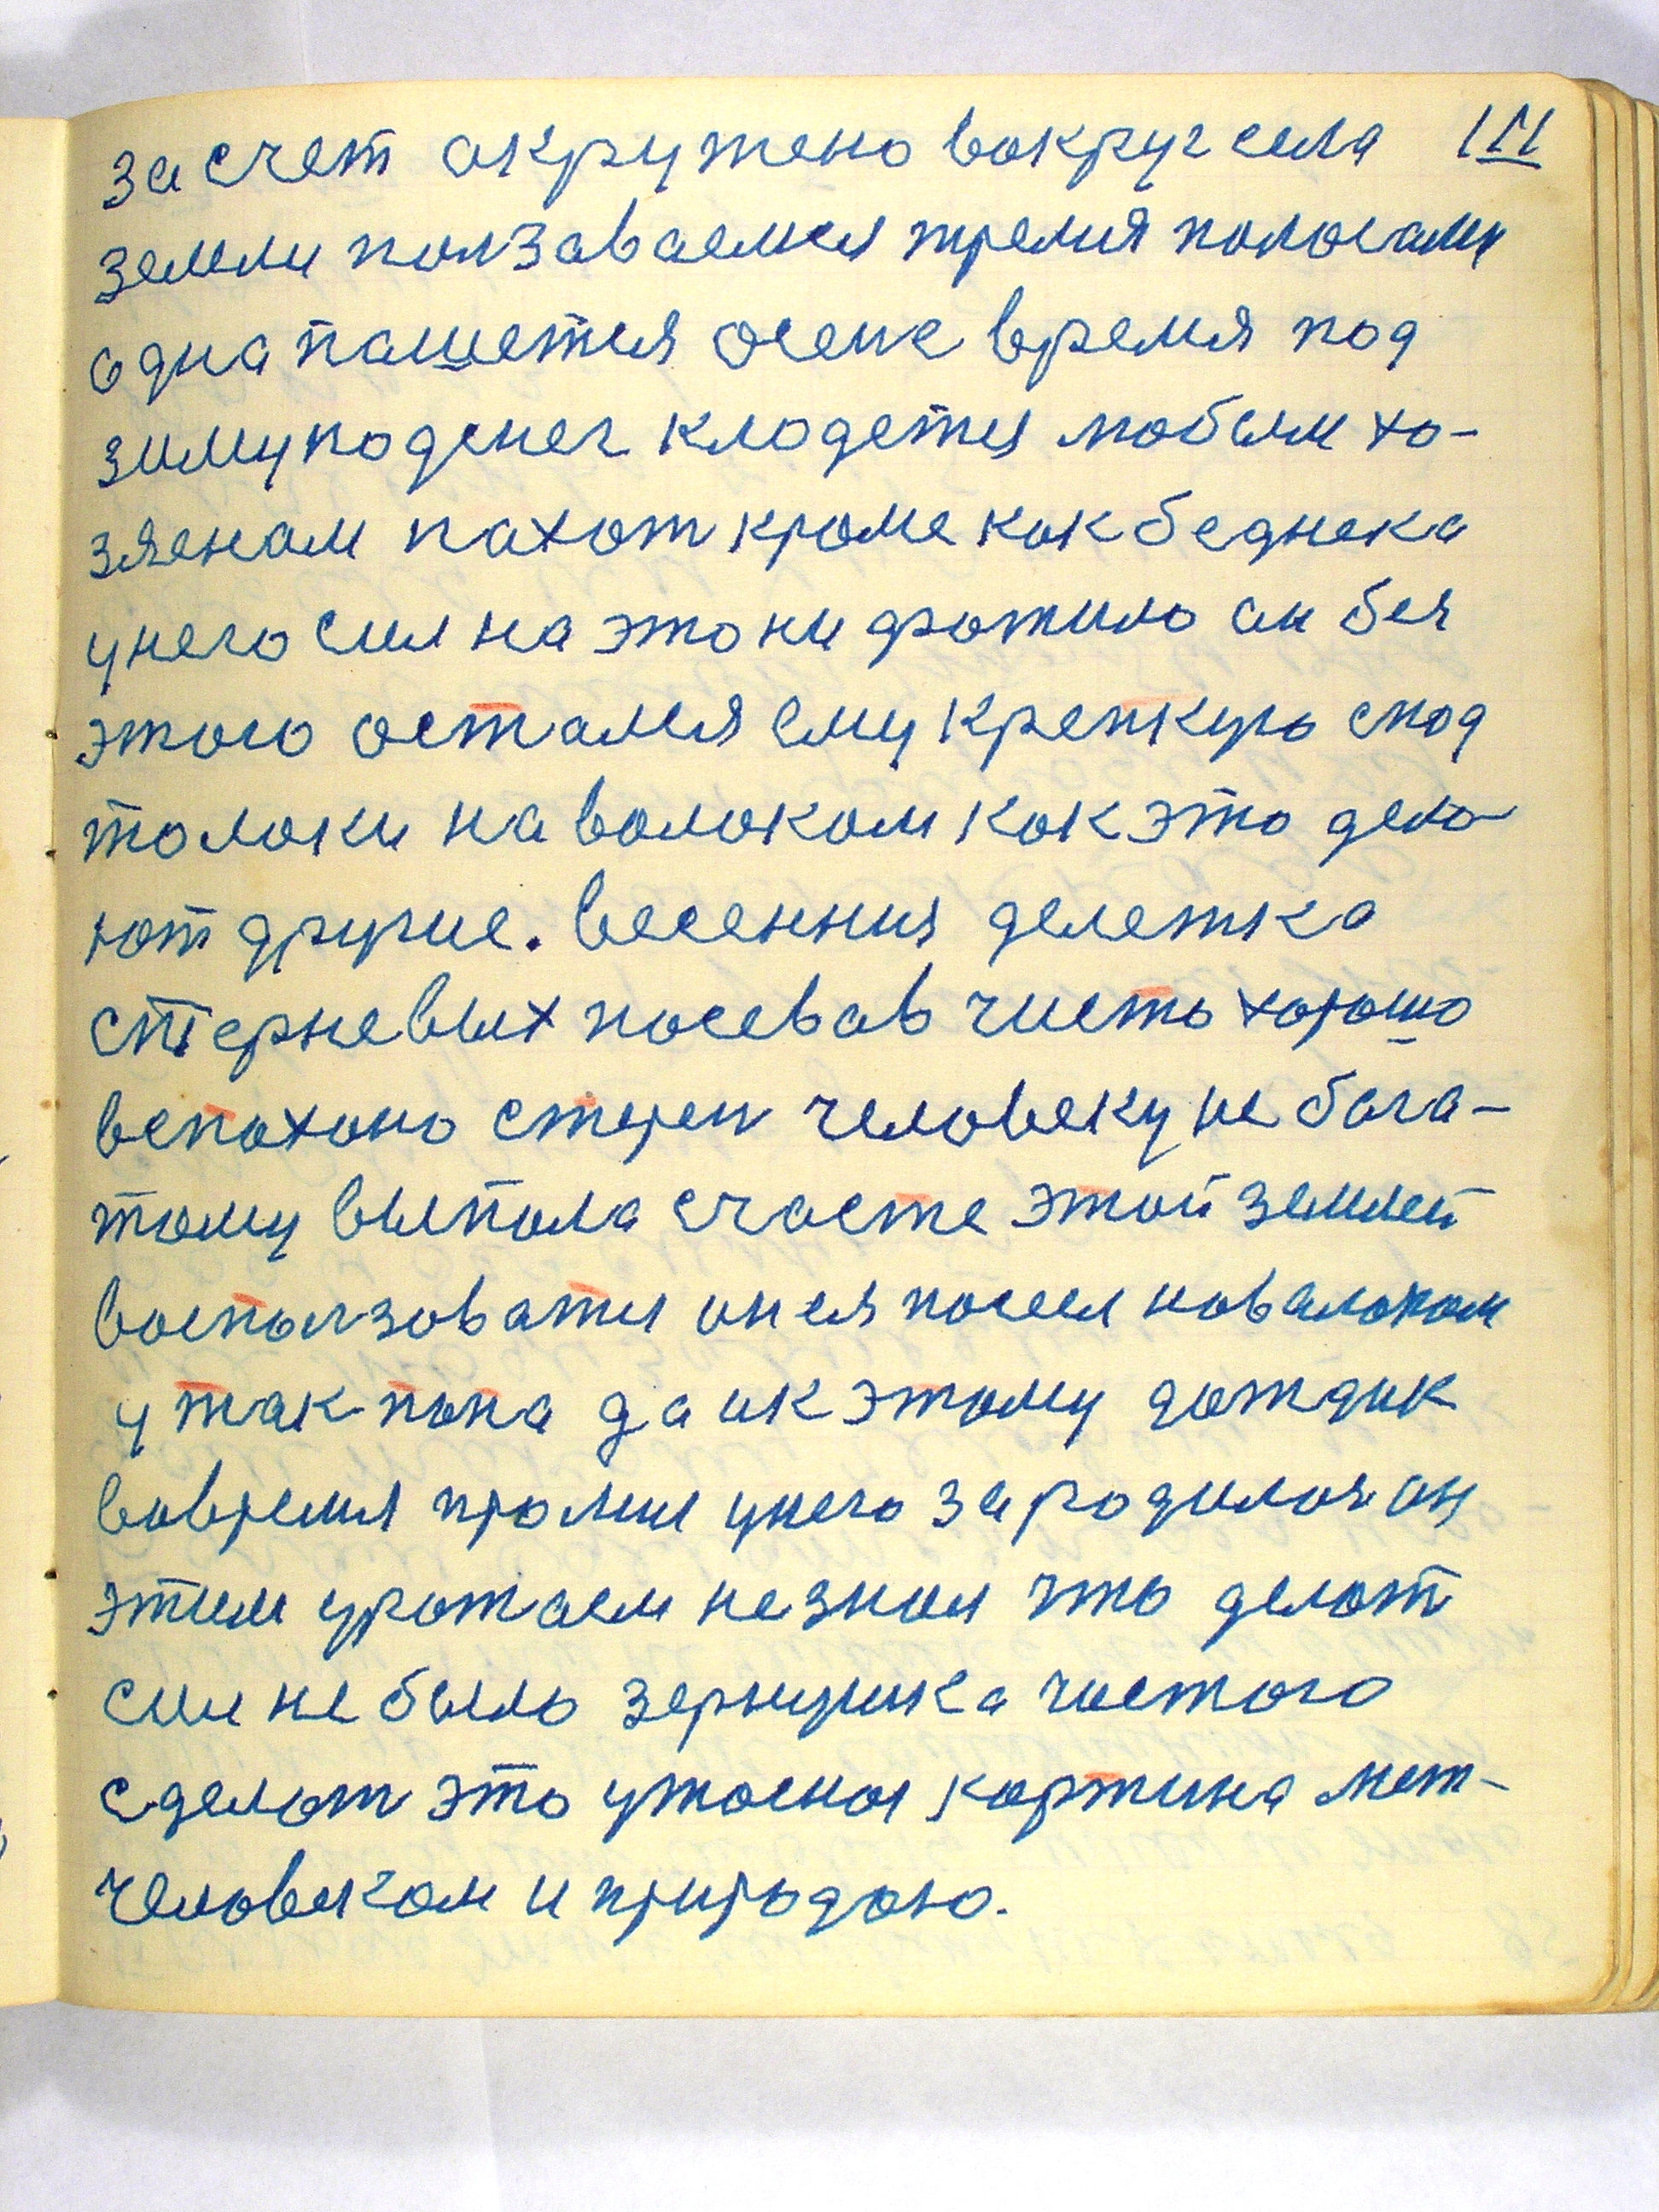 за счет акружено вокруг села 111
земли ползаваемся тремя полосами
одна пашется осене время под
зиму по денег кладется любым хо-
зяенам пахот кроме как беднека
у него сил на это ни фатило он без
этого остался ему крепкую спод
толоки наволоком как это дела
ют другие. Весенния делетка
стерневых посевов чисто хорошо
вспахоно стереп человеку не бага-
тому выпола счасте этой землей
воспользоватся он ея посеел наволоком
у так попа да и к этому дождик
вовремя промыл у него зародилося он
этим урожаем не знал что делат
сили не было зернушка чистого
сделат это ужасноя картина меж-
человеком и природою.